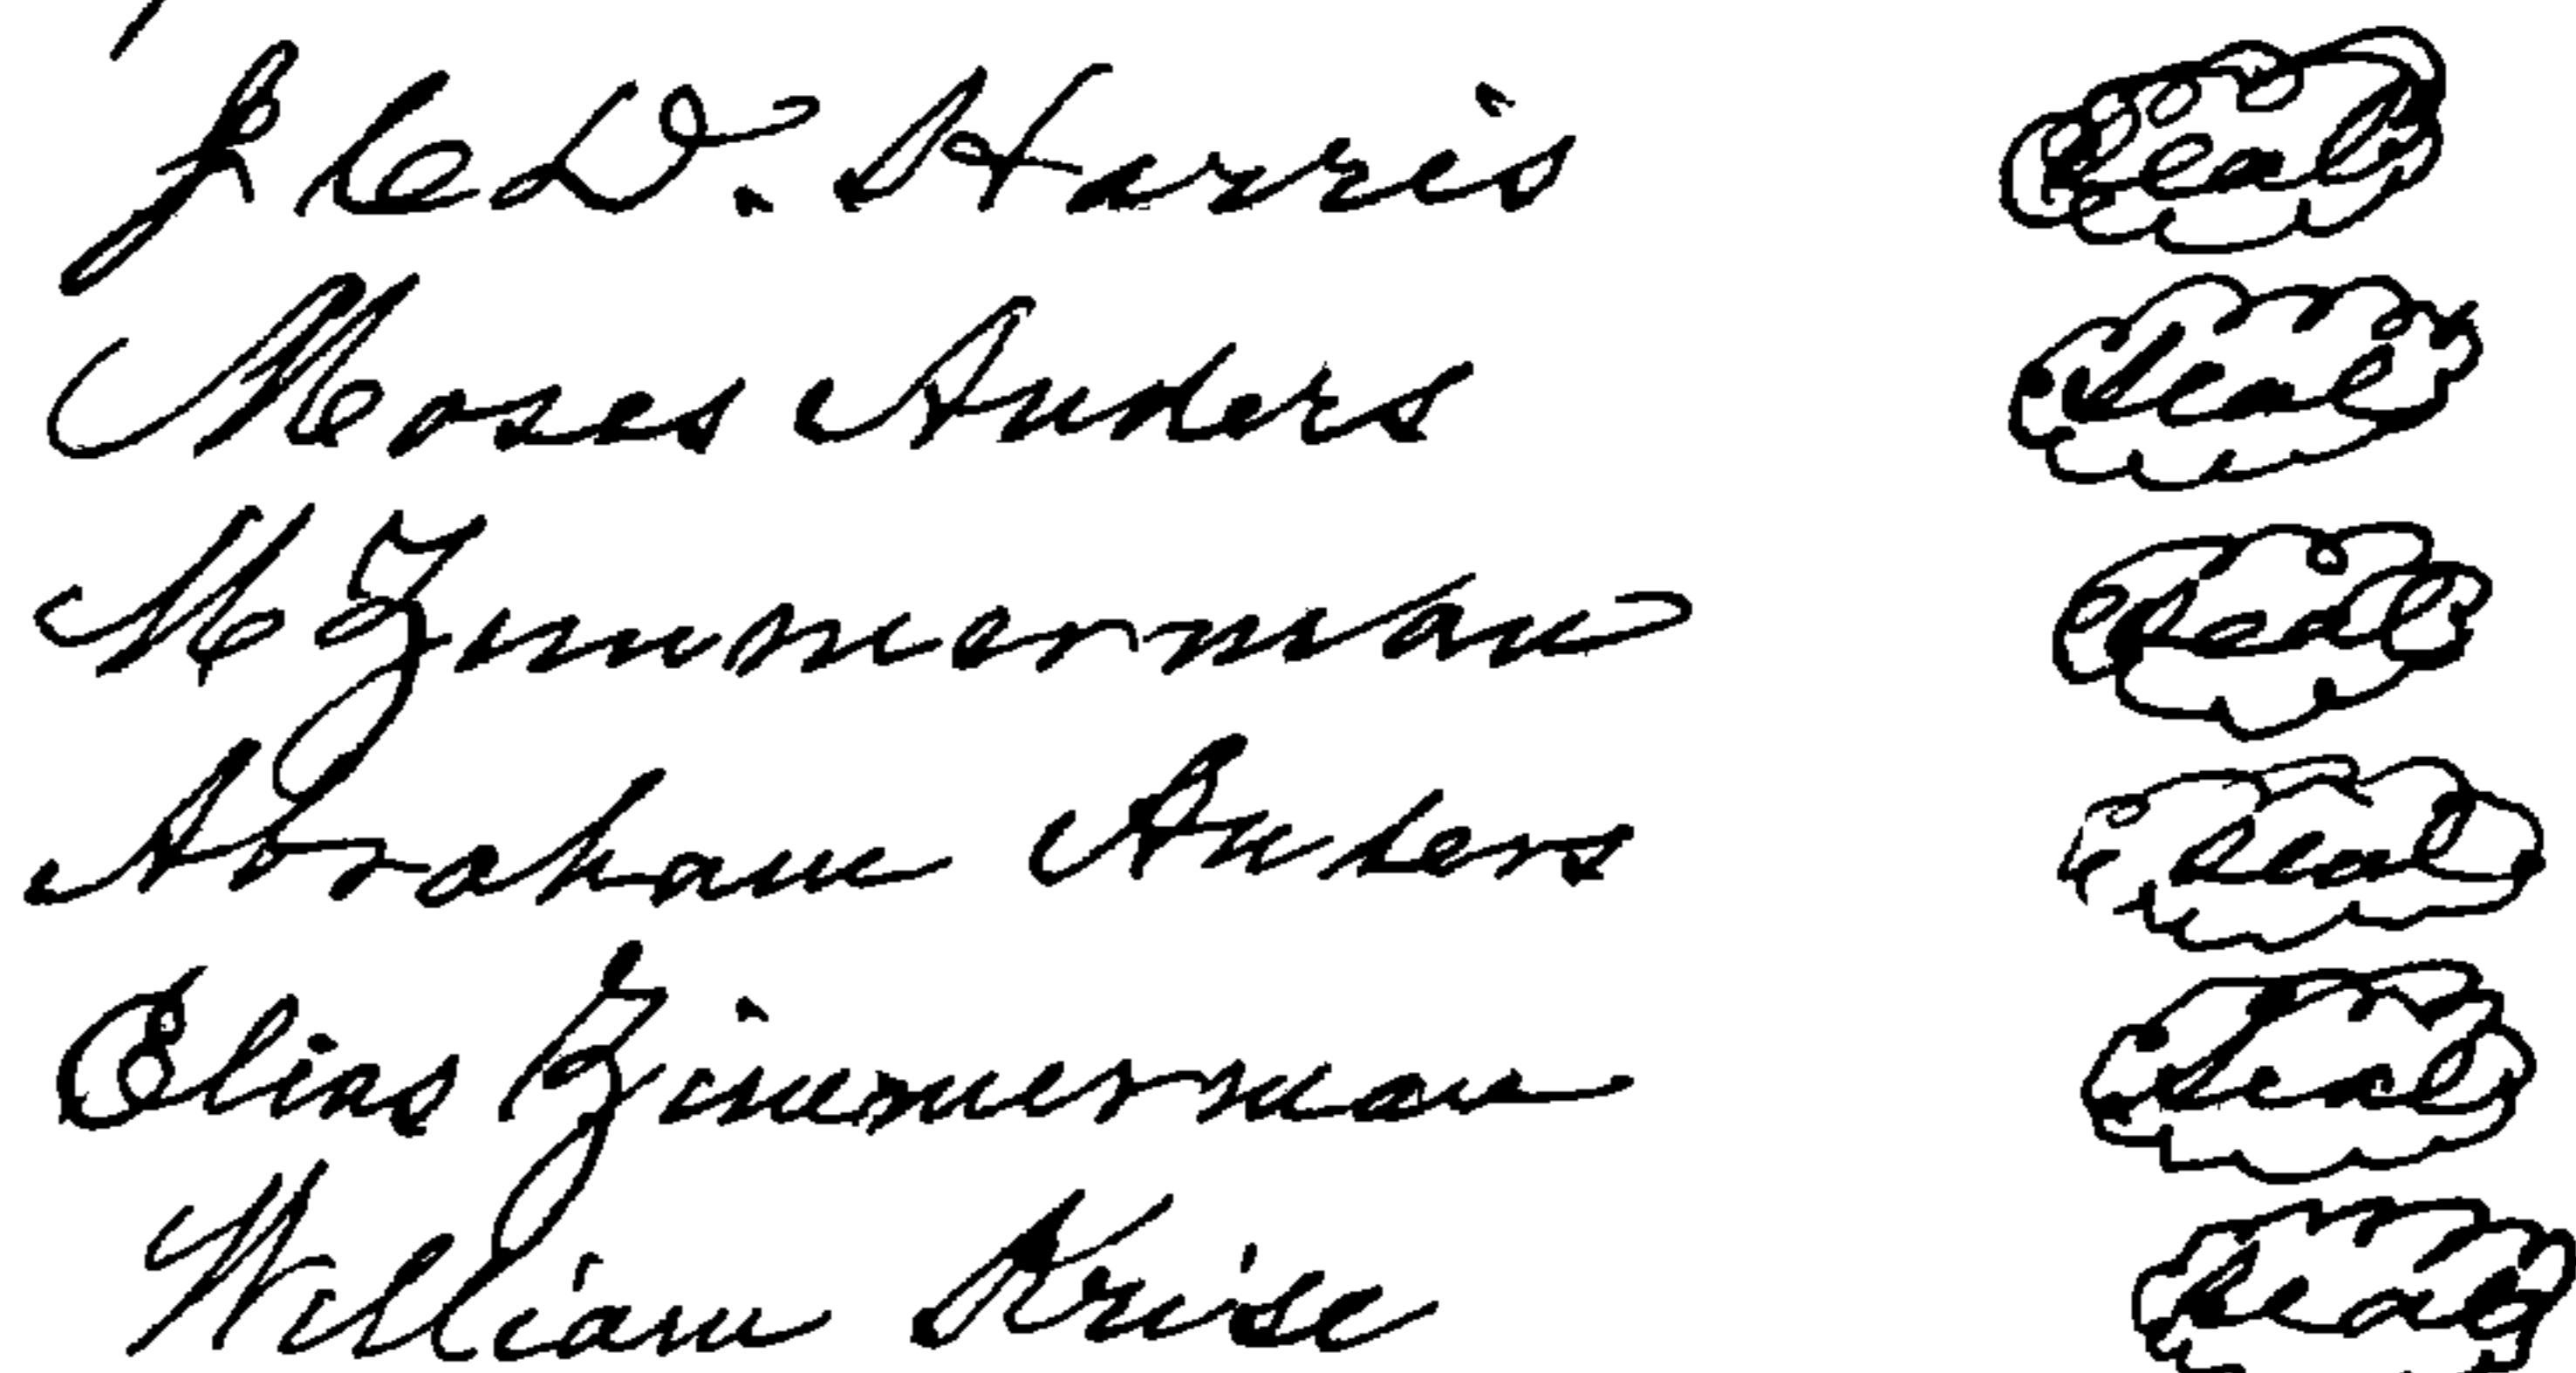 J C W. Harris Seal
Moses Anders Seal
M Zimmerman Seal
Abraham Anders Seal
Elias Zimmerman Seal
William Krise Seal